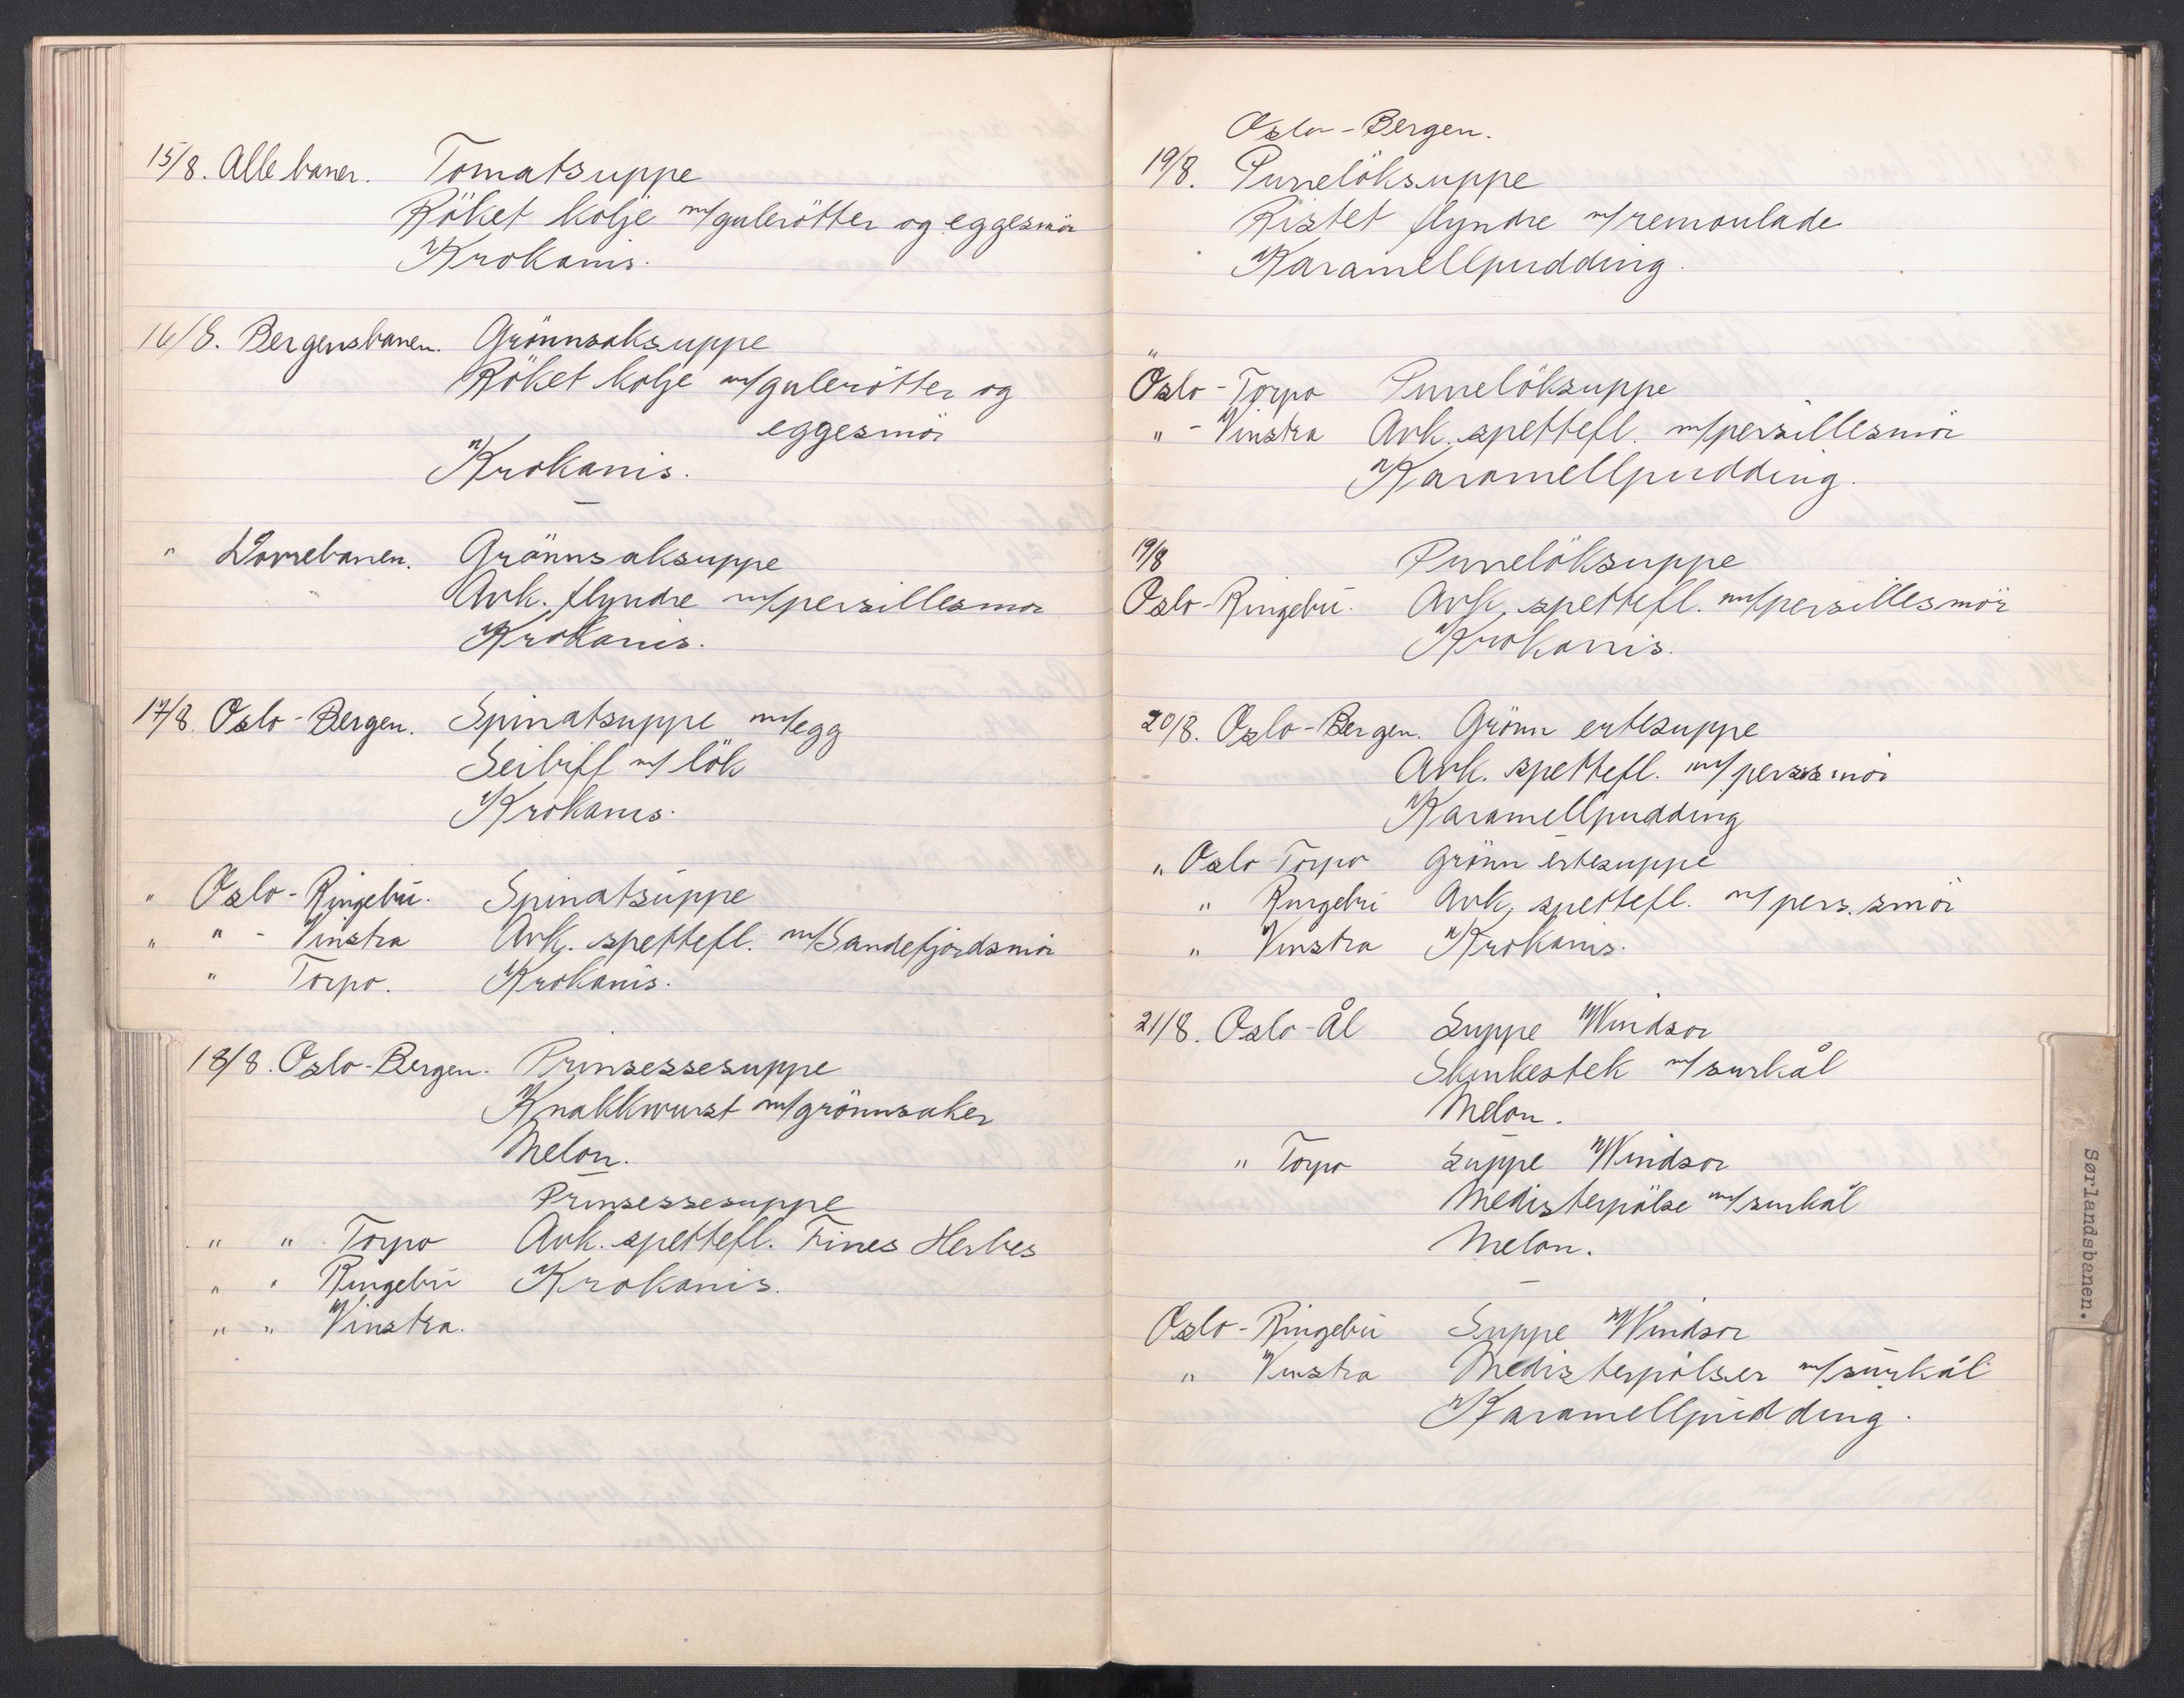 15/8. Alle baner. Tomatsuppe
Röket kolje m/gulerötter og eggesmör
Krokanis.
16/8. Bergensbanen. Grönnsaksuppe
Röket kolje m/gulerötter og
eggesmör
Krokanis.
" Dovrebanen. Grönnsaksuppe
Avk. flyndre m/persillesmör
Krokanis.
17/8. Oslo-Bergen. Spinatsuppe m/egg
Seibiff m/ lök
Krokanis.
" Oslo-Ringebu. Spinatsuppe
" " - Vinstra Avk. spettefl. m/Sandefjordsmör
" Torpo. Krokanis.
18/8. Oslo-Bergen. Prinsessesuppe
Knakkwurst m/grönnsaker
Melon.
Prinsessesuppe
" " Torpo Avk. spettefl. Fines Herbes
" " Ringebu Krokanis.
" " Vinstra.
Oslo-Bergen.
19/8. Purrelöksuppe
Ristet flyndre m/remoulade
Karamellpudding.
"
Oslo-Torpo Purrelöksuppe
" - Vinstra Avk. spettefl. m/persillesmör
Karamellpudding.
19/8 Purrelöksuppe
Oslo-Ringebu. Avk. spettefl. m/persillesmör
Krokanis.
20/8. Oslo-Bergen. Grönn ertesuppe
Avk. spettefl. m/perssmör
Karamellpudding
" Oslo-Torpo Grönn ertesuppe
" Ringebu Avk. spettefl. m/pers. smör
" Vinstra Krokanis.
21/8. Oslo-Ål Suppe Windsor
Skinkestek m/surkål
Melon.
" Torpo Suppe Windsor
Medisterpölse m/surkål
Melon.
Oslo-Ringebu Suppe Windsor
" Vinstra Medisterpölser m/surkål
Karamellpudding.
Sørlandsbanen.